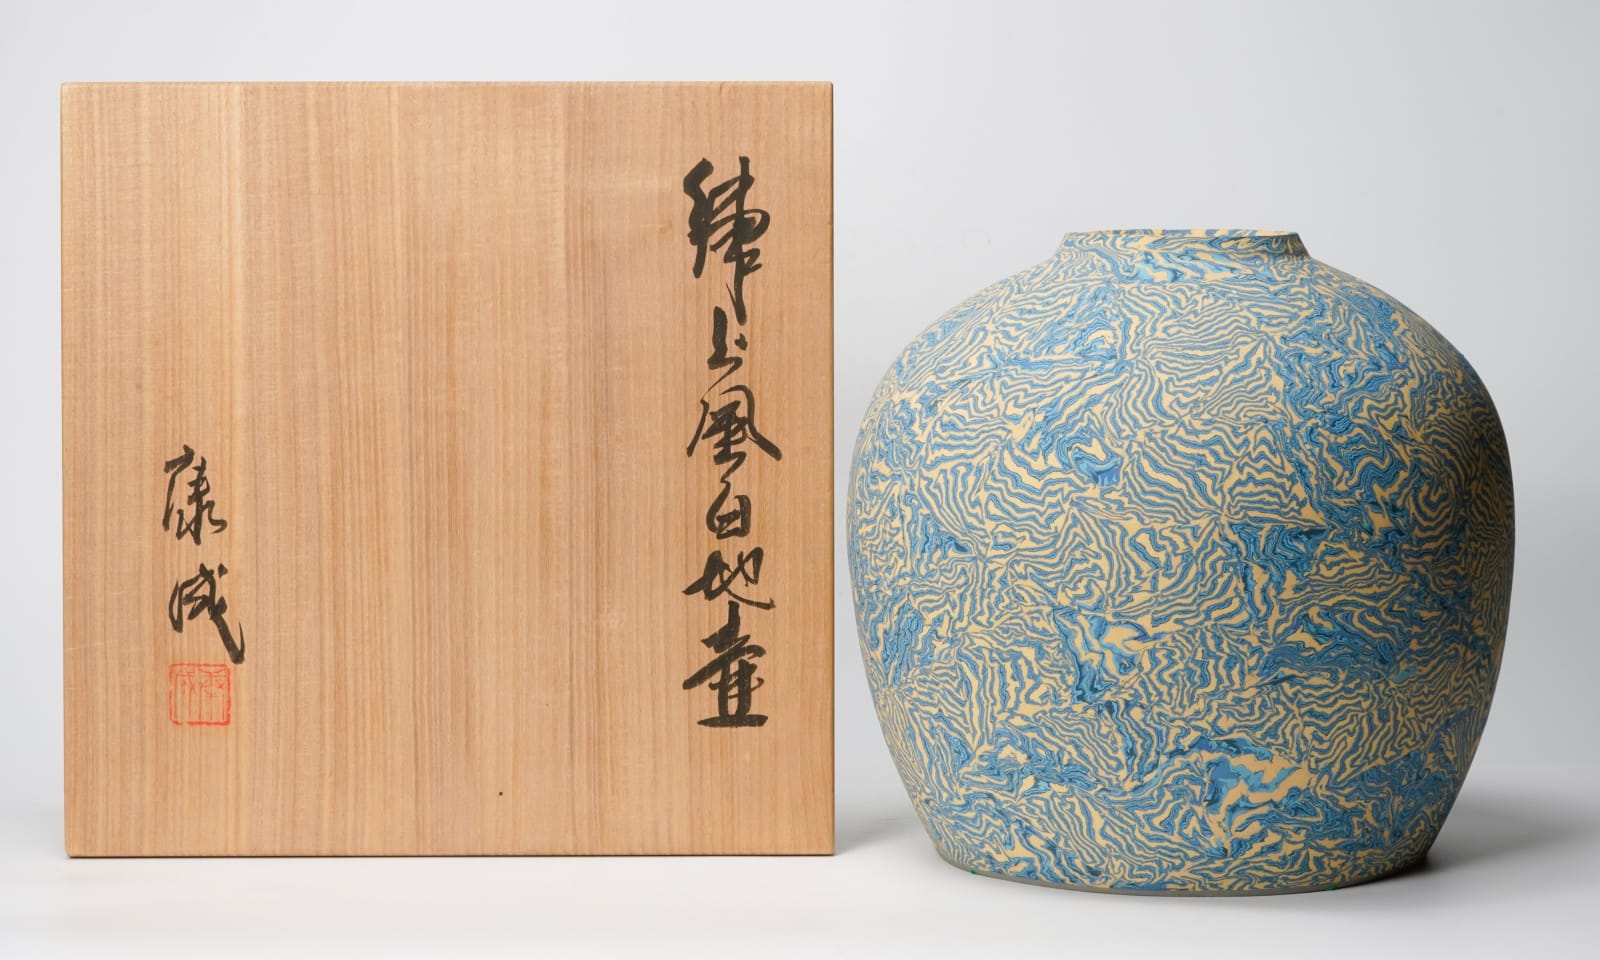 練上風白地壷
康成